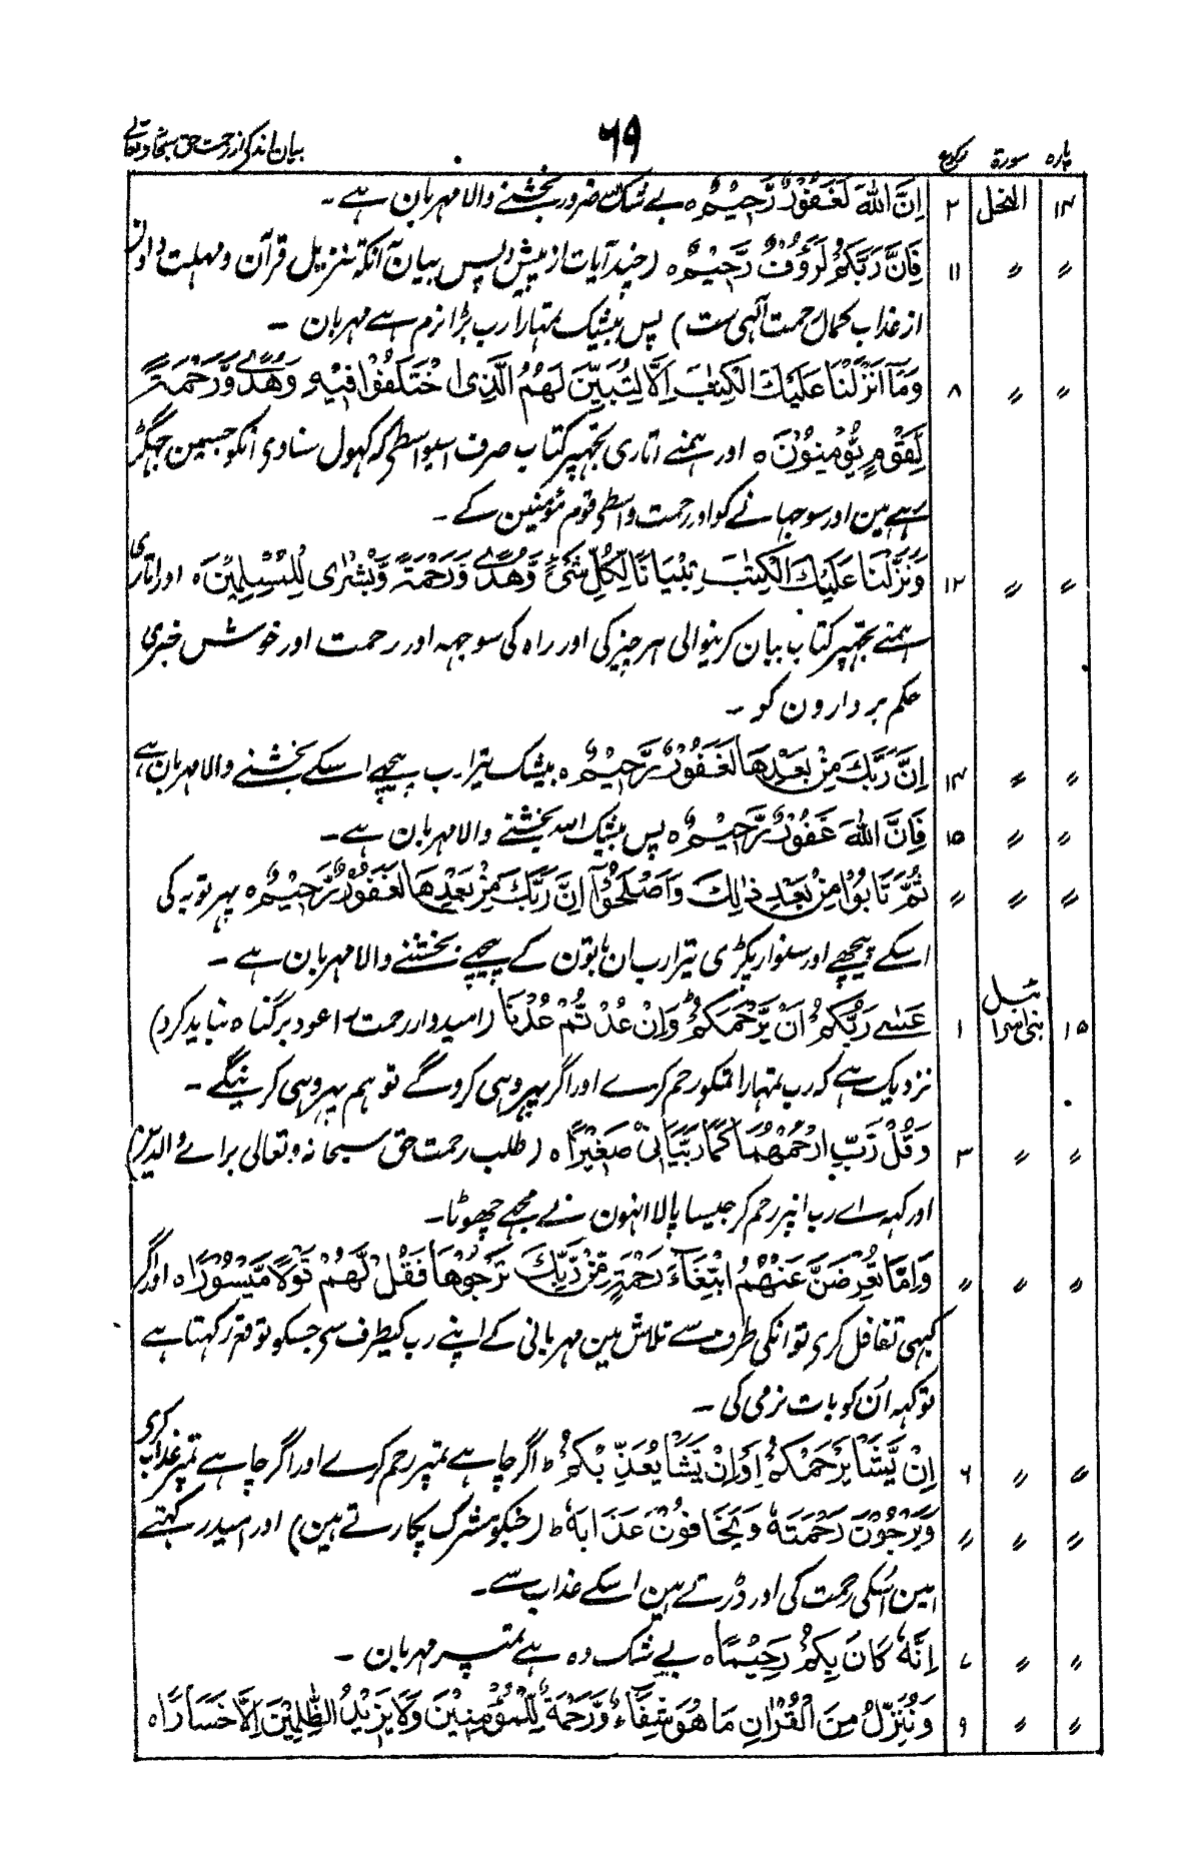 پارہ سورۃ رکوع ۶۹ بیان اندکی از رحمت حق سبحانہ وتعالے
۱۴ النحل ۲ اِنَّ اللّٰهَ لَغَفُوْرٌ رَّحِيْمٌ ہ بے شک اللہ ضرور بخشنے والا مہربان ہے ۔
〃 〃 ۱۱ فَاِنَّ رَبَّكُمْ لَرَؤُفٌ رَّحِيْمٌ ہ (چند آیات از پیش و پس بیان آنکہ تنزیل قرآن و مہلت دادن
از عذاب کمال رحمت آلہی ست) پس بیشک تمہارا رب بڑا نرم ہے مہربان ۔
〃 〃 ۸ وَمَآ اَنْزَلْنَا عَلَيْكَ الْكِتٰبَ اِلَّا لِتُبَيِّنَ لَهُمُ الَّذِى اخْتَلَفُوْا فِيْهِ وَهُدًى وَّرَحْمَةً
لِّقَوْمٍ يُّؤْمِنُوْنَ ہ اور ہمنے اتاری تجھپر کتاب صرف اسیواسطی کہ کہول سنا وی انکو جسمین جہگڑ
رہے ہین اور سوجہانے کو اور رحمت واسطی قوم مؤمنین کے ۔
〃 〃 ۱۲ وَنَزَّلْنَا عَلَيْكَ الْكِتٰبَ تِبْيَانًا لِّكُلِّ شَىْءٍ وَّهُدًى وَّرَحْمَةً وَّبُشْرٰى لِلْمُسْلِمِيْنَ ہ اور اتاری
ہمنے تجھپر کتاب بیان کرنیوالی ہر چیز کی اور راہ کی سوجہہ اور رحمت اور خوش خبری
حکم بردارون کو ۔
〃 〃 ۱۴ اِنَّ رَبَّكَ مِنْۢ بَعْدِهَا لَغَفُوْرٌ رَّحِيْمٌ ہ بیشک تیرا رب پیچھے اسکے بخشنے والا مہربان ہے
〃 〃 ۱۵ فَاِنَّ اللّٰهَ غَفُوْرٌ رَّحِيْمٌ ہ پس بیشک اللہ بخشنے والا مہربان ہے ۔
〃 〃 〃 ثُمَّ تَابُوْا مِنْۢ بَعْدِ ذٰلِكَ وَاَصْلَحُوْٓا اِنَّ رَبَّكَ مِنْۢ بَعْدِهَا لَغَفُوْرٌ رَّحِيْمٌ ہ پہر توبہ کی
اسکے پیچھے اور سنوار پکڑی تیرا رب ان باتون کے پیچھے بخشنے والا مہربان ہے ۔
۱۵ بنی اسرائیل ۱ عَسٰے رَبُّكُمْ اَنْ يَّرْحَمَكُمْ وَاِنْ عُدْتُّمْ عُدْنَا (امیدوار رحمت را عود بر گناہ نباید کرد)
نزدیک ہے کہ رب تمہارا تمکو رحم کرے اور اگر پہر وہی کروگے تو ہم پہر وہی کرینگے ۔
〃 〃 ۳ وَقُلْ رَّبِّ ارْحَمْهُمَا كَمَا رَبَّيٰنِىْ صَغِيْرًا ہ (طلب رحمت حق سبحانہ وتعالی برائے والدین)
اور کہہ اے رب انپر رحم کر جیسا پالا انہون نے مجھے چھوٹا ۔
〃 〃 〃 وَاِمَّا تُعْرِضَنَّ عَنْهُمُ ابْتِغَآءَ رَحْمَةٍ مِّنْ رَّبِّكَ تَرْجُوْهَا فَقُلْ لَّهُمْ قَوْلًا مَّيْسُوْرًا ہ اور اگر
کبہی تغافل کری تو انکی طرف سے تلاش مین مہربانی کے اپنے رب کیطرف سی جسکو توقع رکہتا ہے
تو کہہ اُن کو بات نرمی کی ۔
〃 〃 ۶ اِنْ يَّشَاْ يَرْحَمْكُمْ اَوْ اِنْ يَّشَاْ يُعَذِّبْكُمْ ط اگر چاہے تمپر رحم کرے اور اگر چاہے تمپر عذاب کری
〃 〃 〃 وَيَرْجُوْنَ رَحْمَتَهٗ وَيَخَافُوْنَ عَذَابَهٗ ط (جنکو مشرک پکارتے ہین) اور امید رکہتے
ہین اُسکی رحمت کی اور ڈرتے ہین اسکے عذاب سے ۔
〃 〃 ۷ اِنَّهٗ كَانَ بِكُمْ رَحِيْمًا ہ بے شک وہ ہے تمپر مہربان ۔
〃 〃 ۹ وَنُنَزِّلُ مِنَ الْقُرْاٰنِ مَا هُوَ شِفَآءٌ وَّرَحْمَةٌ لِّلْمُؤْمِنِيْنَ وَلَا يَزِيْدُ الظّٰلِمِيْنَ اِلَّا خَسَارًا ہ